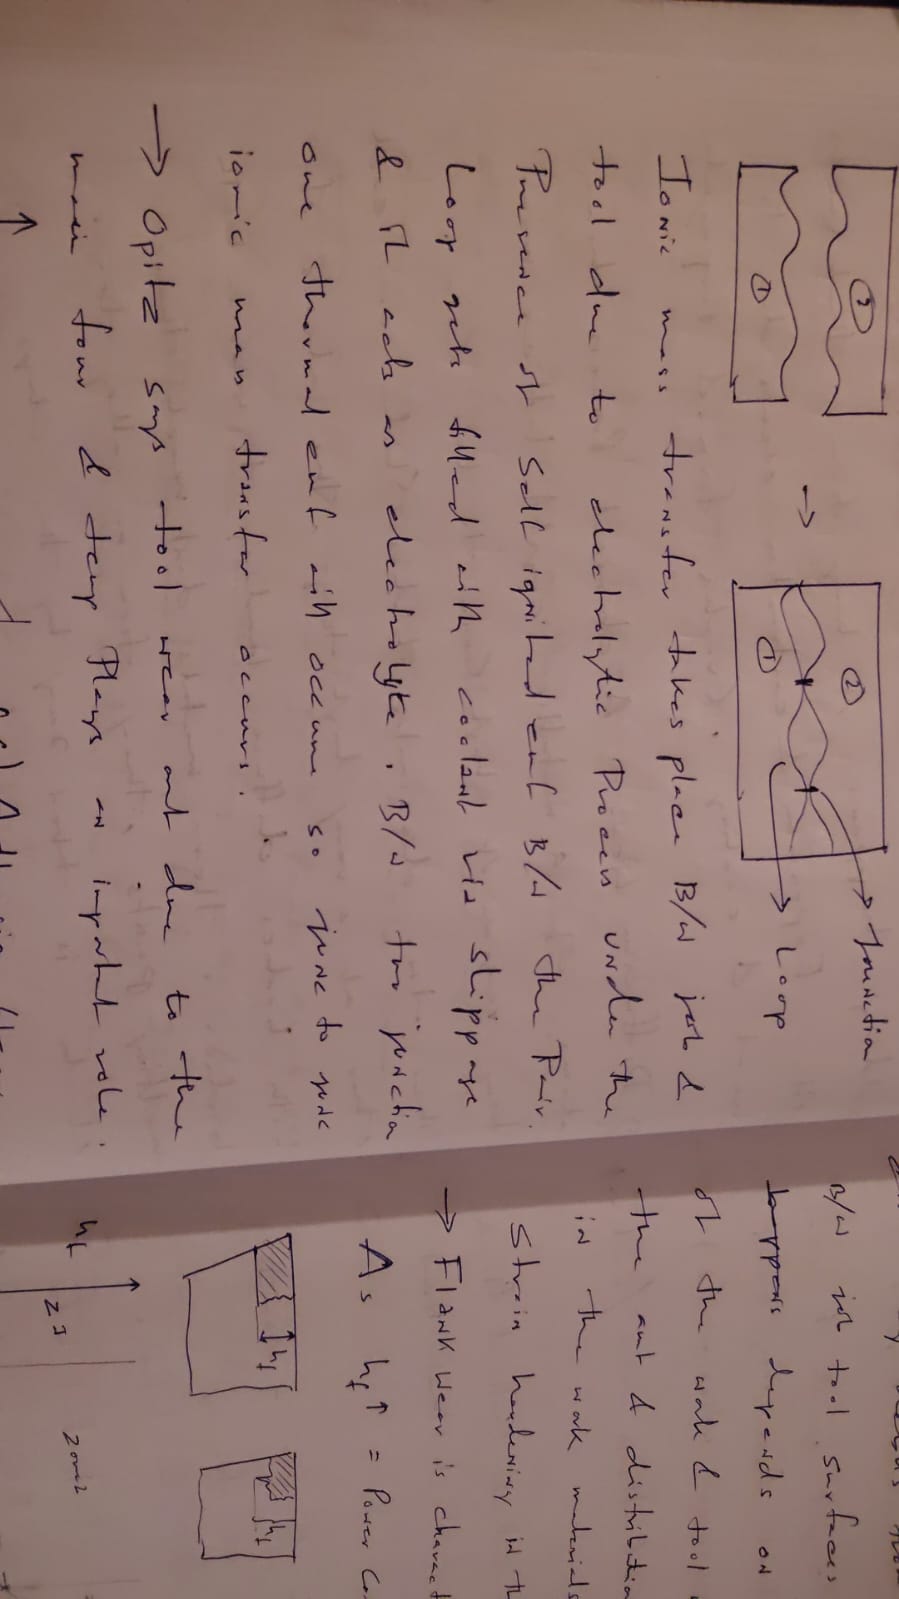 ②
①
→
②
①
Junction
Loop
Ionic mass transfer takes place B/W job &
tool due to electrolytic Process under the
Presence of Self ignited emf B/W the Pair.
Loop gets filled with coolant via slippage
& it acts as electrolyte. B/W two junction
one thermal emf will occure so junc to junc
ionic mass transfer occurs.
→ Opitz says tool wear out due to the
four & temp Plays an important role.
↑
B/W job tool surfaces
depends on
of the work & tool
the amt & distribution
in the work materials
Strain hardening in th
→ Flank Wear is charact
As hf ↑ = Power Co
hf
hf
hf
zone2